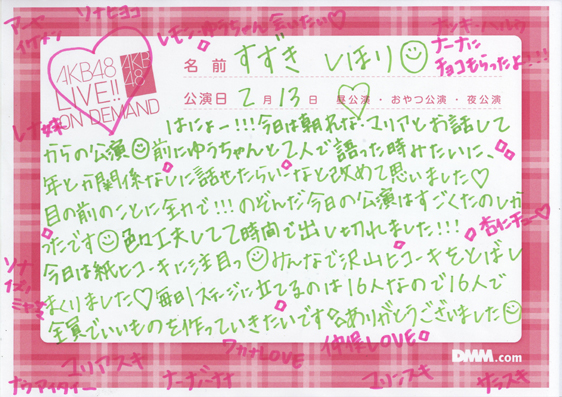 アーヤ
イケメン
ソナヒヨコ
レモン・ゆうちゃん会いたい♡
ナーナに
チョコもらったよー!!!
AKB48
LIVE!!
ON DEMAND
AKB
48
名前 すずき しほり
公演日 2月13日 昼公演・おやつ公演・夜公演
レナ妹
はにょー!!!今日は朝れな・マリアとお話して
からの公演 前にゆうちゃんと2人で語った時みたいに、
年とか関係なしに話せたらいいなと改めて思いました♡
目の前のことに全力で!!!のぞんだ今日の公演はすごくたのしか
ったです 色々工夫して2時間で出し切れました!!!
今日は紙ヒコーキに注目っ みんなで沢山ヒコーキをとばし
まくりました♡毎日1ステージに立てるのは16人なので16人で
全員でいいものを作っていきたいです☆ありがとうございました
杏仁チュー♡
ソナ
ワカナLOVE
仲俣LOVE
DMM.com
マリアスキ
ナーバーナナ
マリンスキ
サラスキ